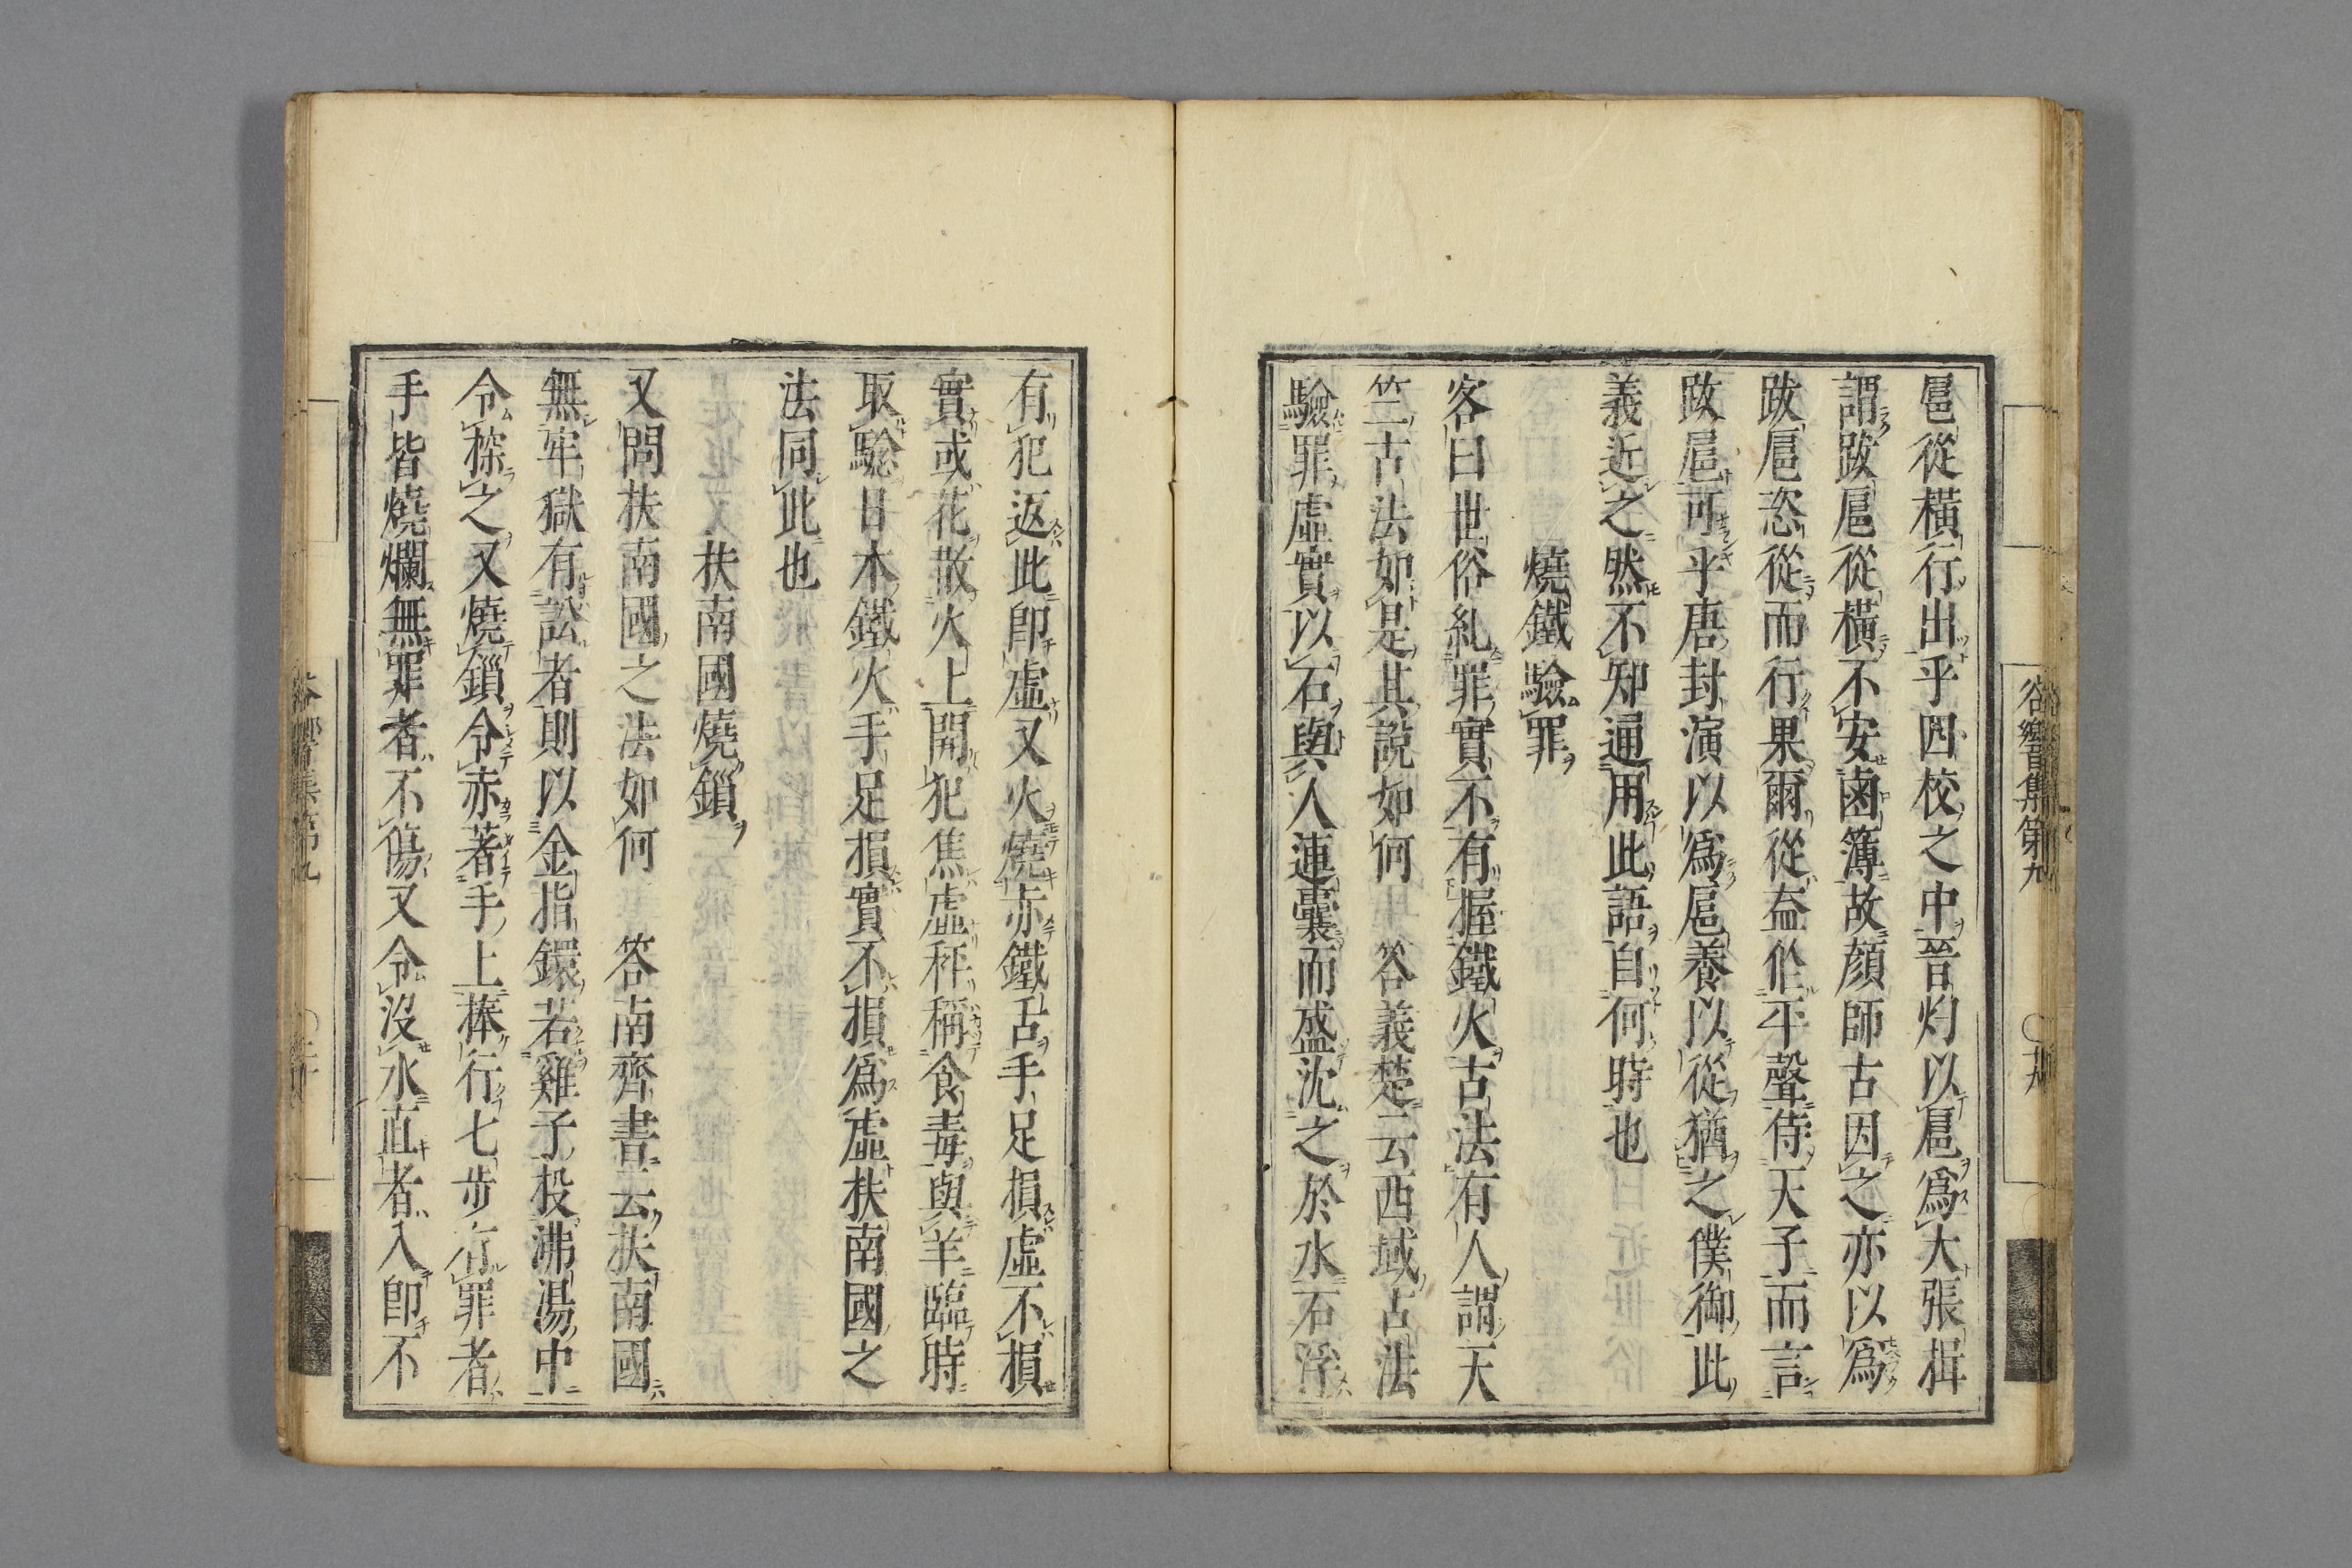 扈從橫行出乎四校之中晉灼以扈爲大張揖
謂跋扈從橫不安鹵簿故顔師古因之亦以爲
跋扈恣從而行果爾從益作平聲侍天子而言
跋扈可乎唐封演以爲扈養以從猶之僕御此
義近之然不知通用此語自何時也
燒鐵驗罪
客曰世俗糺罪實不有握鐵火古法有人謂天
竺古法如是其說如何 答義楚云西域古法
驗罪虛實以石與人連囊而盛沈之於水石浮
谷響集第九
有犯返此即虛又火燒赤鐵舌手足損虛不損
實或花散火上開犯焦虛秤稱食毒與羊臨時
取驗日本鐵火手足損實不損爲虛扶南國之
法同此也
扶南國燒鎖
又問扶南國之法如何 答南齊書云扶南國
無牢獄有訟者則以金指鐶若雞子投沸湯中
令探之又燒鎖令赤著手上捧行七步有罪者
手皆燒爛無罪者不傷又令沒水直者入即不
谷響集第九